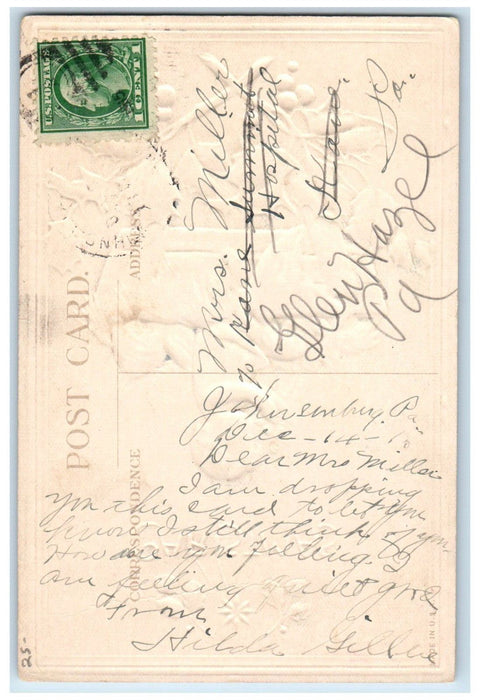 U.S. POSTAGE
1 CENT 1
POST CARD.
ADDRESS
CORRESPONDENCE
Mrs. Miller
Kane Summit
Hospital
Kane. Pa.
Glen Hazel
Pa
Johnsonburg Pa.
Dec-14-1
Dear Mrs Miller
I am dropping
you this card to let you
know I still think of you
How are you feeling. I
am feeling quiet good
From
Hilda
MADE IN U.S.A.
25-